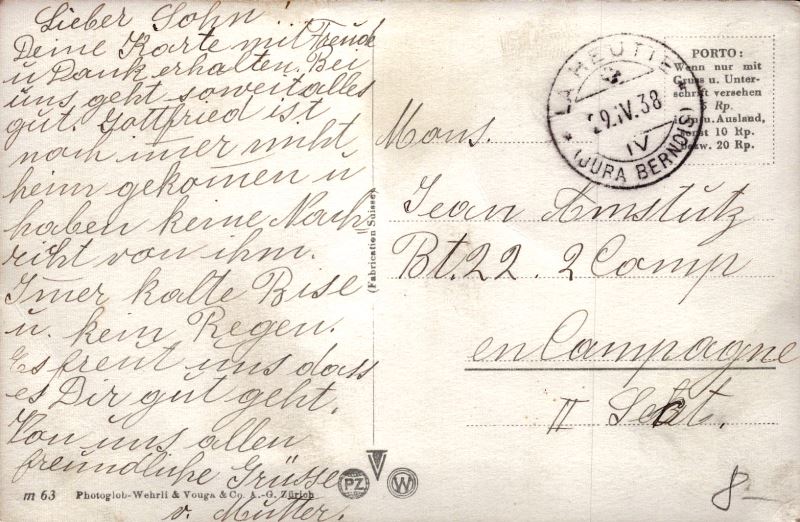 Lieber Sohn!
Deine Karte mit Freude
u Dank erhalten. Bei
uns geht soweit alles
gut. Gottfried ist
noch imer nicht
heim gekomen u
haben keine Nach=
richt von ihm.
Imer kalte Bise
u. kein Regen.
Es freut uns dass
es Dir gut geht.
Von uns allen
freundliche Grüsse
v. Mutter.
m 63 Photoglob-Wehrli & Vouga & Co. A.-G. Zürich
(Fabrication Suisse)
PZ
W
LA HEUTTE
29.IV.38
IV
(JURA BERNOIS)
PORTO:
Wenn nur mit
Gruss u. Unter-
schrift versehen
5 Rp.
u. Ausland,
sonst 10 Rp.
bezw. 20 Rp.
Mons.
Jean Amstutz
Bt. 22. 2 Comp
en Campagne
II Sect.
8-